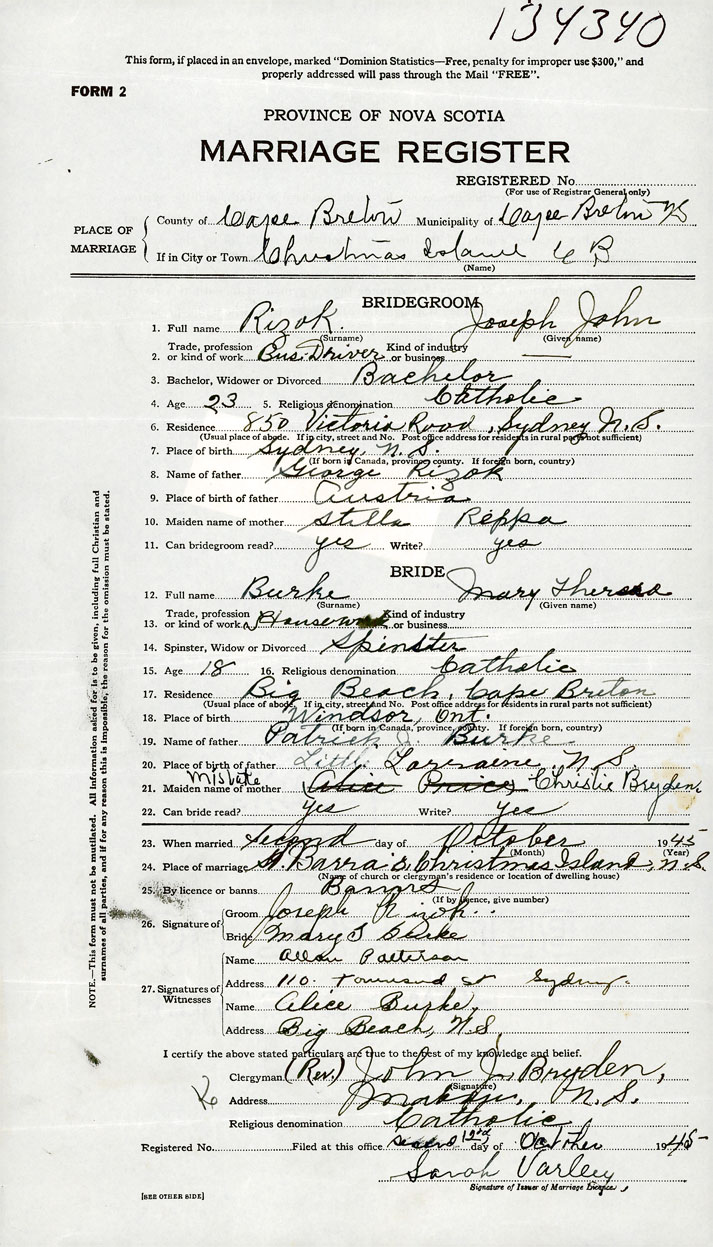 134340
This form, if placed in an envelope, marked "Dominion Statistics—Free, penalty for improper use $300," and
properly addressed will pass through the Mail "FREE".
FORM 2
PROVINCE OF NOVA SCOTIA
MARRIAGE REGISTER
REGISTERED No.
(For use of Registrar General only)
PLACE OF MARRIAGE
County of Cape Breton Municipality of Cape Breton NS
If in City or Town Christmas Island C B
(Name)
BRIDEGROOM
1. Full name Rizok Joseph John
(Surname) (Given name)
Trade, profession Kind of industry
2. or kind of work Bus. Driver or business —
3. Bachelor, Widower or Divorced Bachelor
4. Age 23 5. Religious denomination Catholic
6. Residence 850 Victoria Road, Sydney N.S.
(Usual place of abode. If in city, street and No. Post office address for residents in rural parts not sufficient)
7. Place of birth Sydney, N.S.
(If born in Canada, province, county. If foreign born, country)
8. Name of father George Rizok
9. Place of birth of father Austria
10. Maiden name of mother Stella Reppa
11. Can bridegroom read? yes Write? yes
BRIDE
12. Full name Burke Mary Theresa
(Surname) (Given name)
Trade, profession Kind of industry
13. or kind of work or business
14. Spinster, Widow or Divorced Spinster
15. Age 18 16. Religious denomination Catholic
17. Residence Big Beach, Cape Breton
(Usual place of abode. If in city, street and No. Post office address for residents in rural parts not sufficient)
18. Place of birth Windsor, Ont.
(If born in Canada, province, county. If foreign born, country)
19. Name of father Patrick J. Burke
20. Place of birth of father Little Lorraine, N.S.
mistake
21. Maiden name of mother (Alice Price) Christie Bryden,
22. Can bride read? yes Write? yes
23. When married second day of October 1945
(Month) (Year)
24. Place of marriage St. Barra's, Christmas Island, N.S.
(Name of church or clergyman's residence or location of dwelling house)
25. By licence or banns Banns
(If by licence, give number)
26. Signature of
Groom Joseph Rizok
Bride Mary T Burke
27. Signatures of Witnesses
Name Allan Patterson
Address 110 Townsend St Sydney
Name Alice Burke,
Address Big Beach, N.S.
I certify the above stated particulars are true to the best of my knowledge and belief.
Clergyman (Rev.) John J. Bryden,
(Signature)
Address N.S.
Religious denomination Catholic
Registered No. Filed at this office second 12nd day of October 1945
Sarah Varley
Signature of Issuer of Marriage Licence
[SEE OTHER SIDE]
NOTE.—This form must not be mutilated. All Information asked for is to be given, including full Christian and
surnames of all parties, and if for any reason this is impossible, the reason for the omission must be stated.